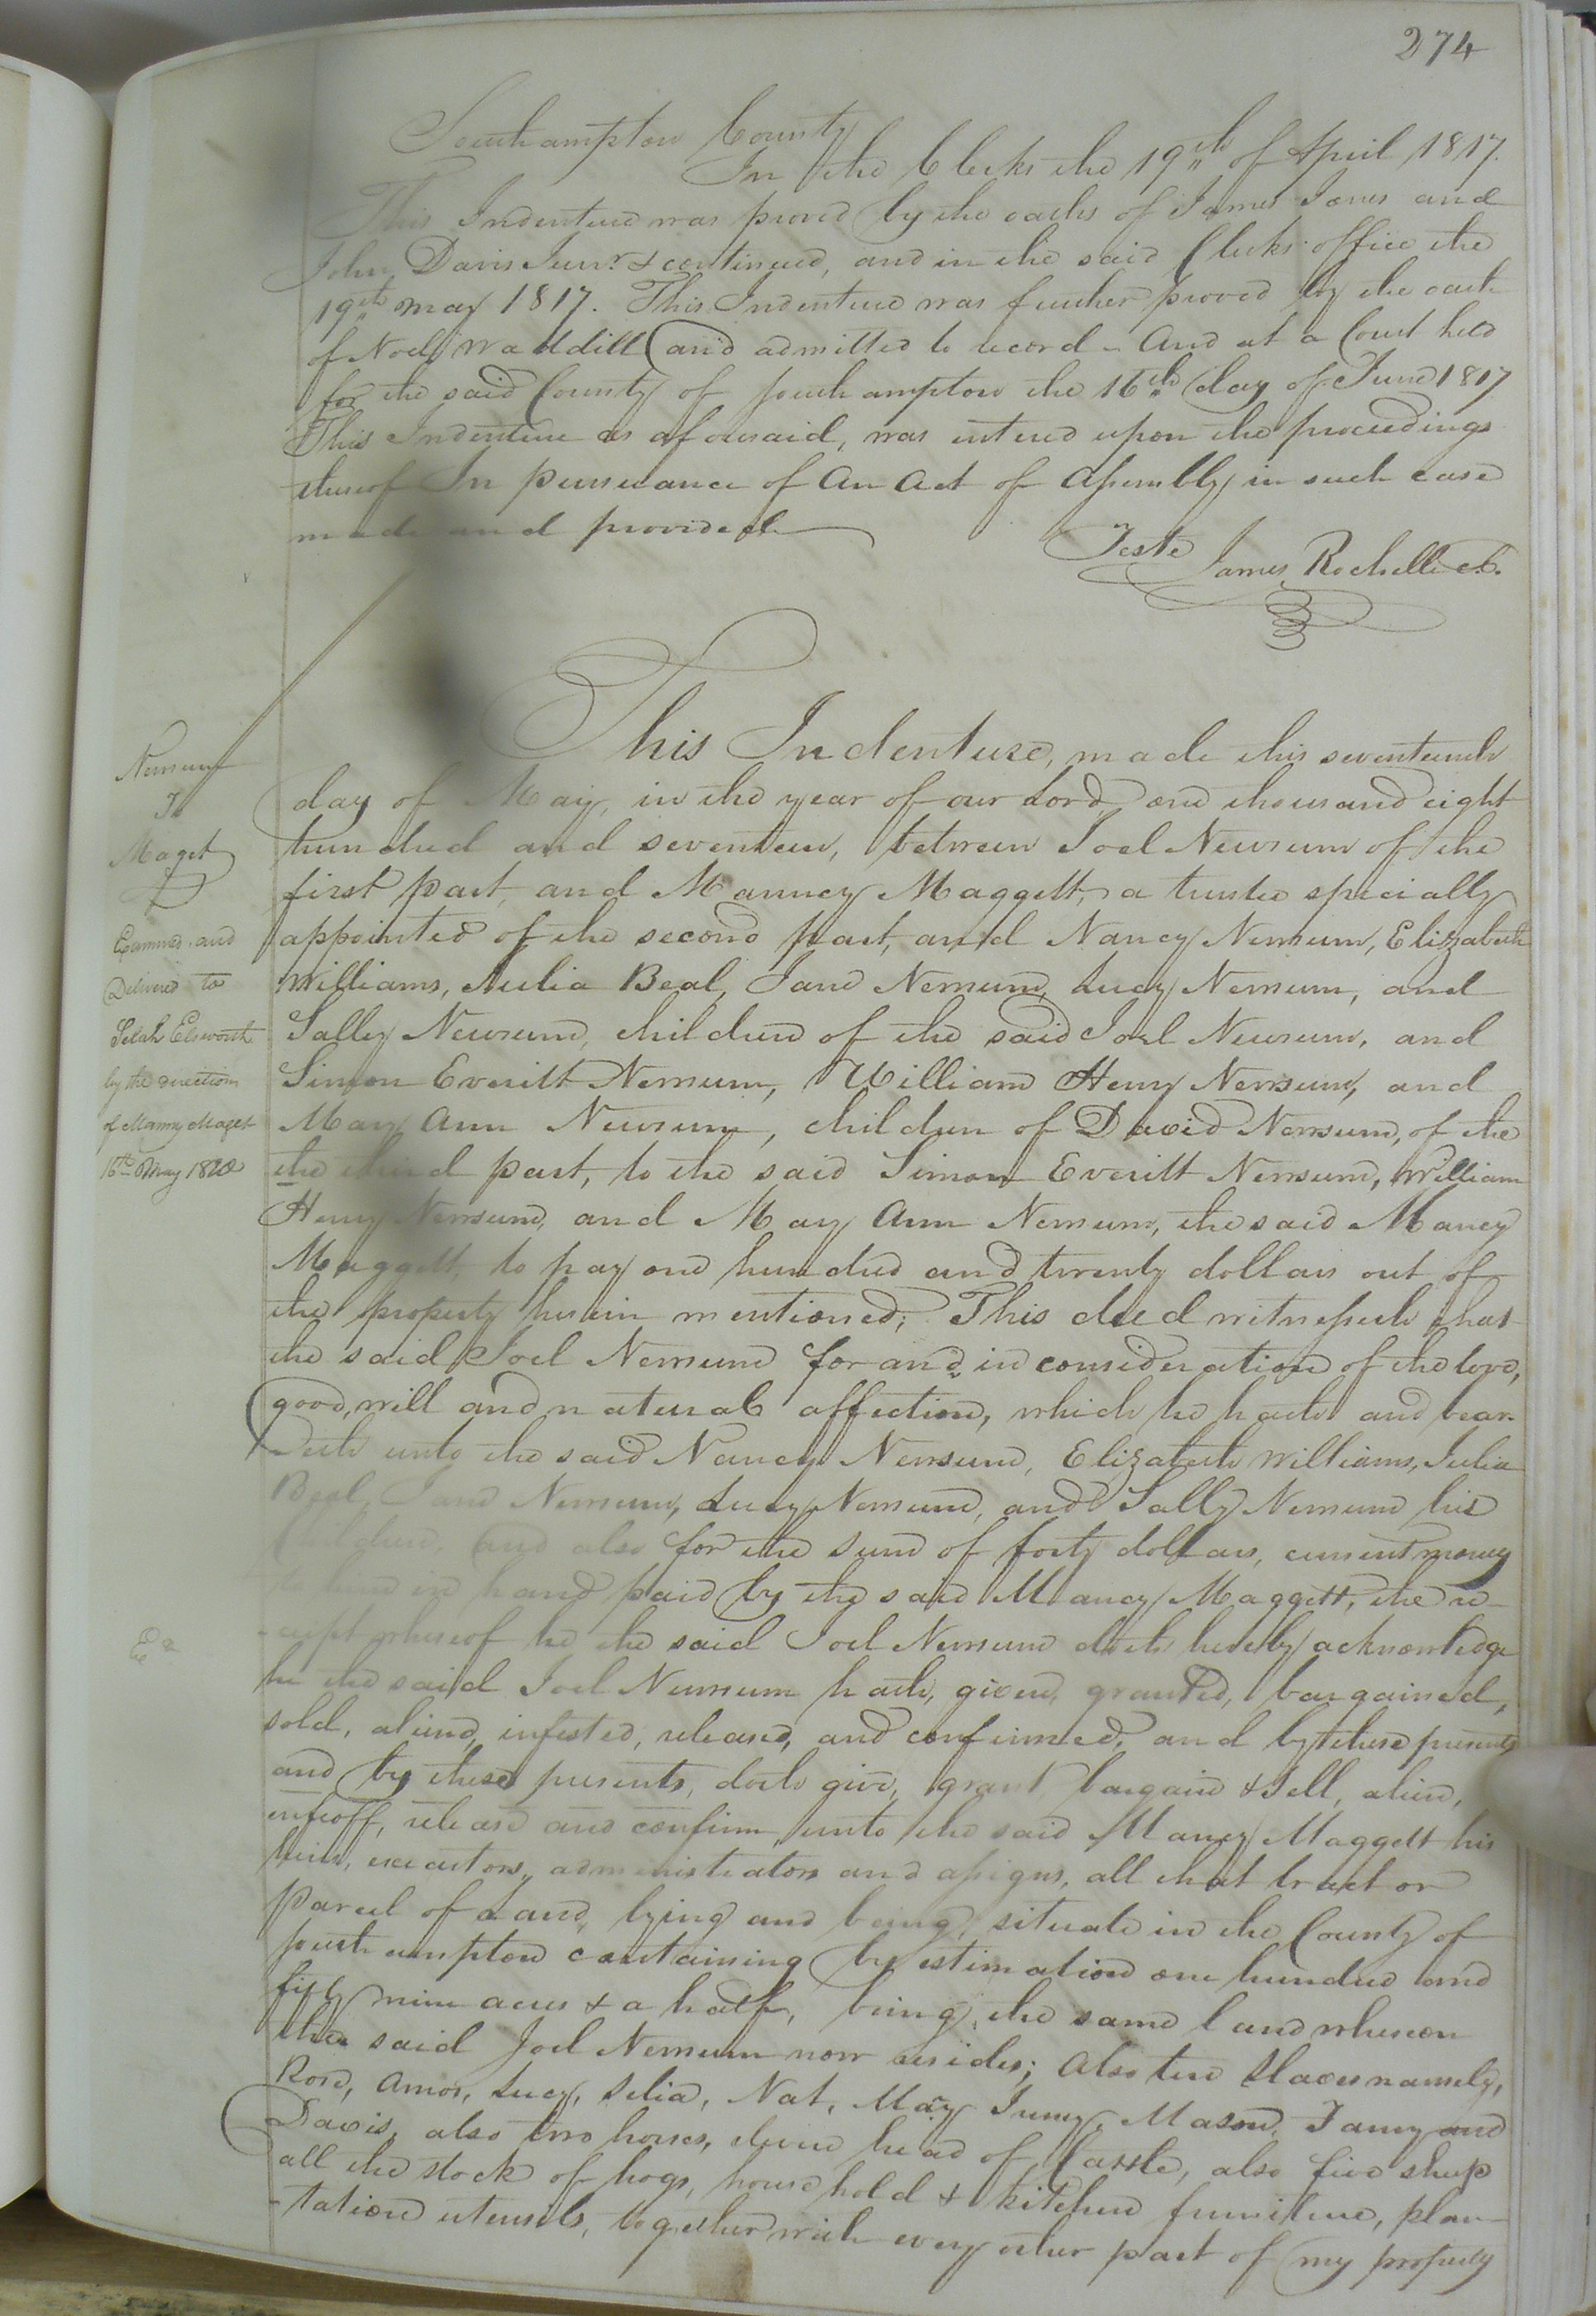 274
Southampton County
In the Clerks the 19th of April 1817.
This Indenture was proved by the oaths of James Jones and
John Davis Junr. & continued, and in the said Clerks office the
19th may 1817. This Indenture was further proved by the oath
of Noel Waddill and admitted to record – And at a Court held
for the said County of Southampton the 16th day of June 1817
This Indenture as aforesaid, was entered upon the proceedings
thereof In pursuance of An Act of Assembly in such case
made and provided
Teste
James Rochelle Ck.
Newsum
To
Maget
Examined and
Delivered to
by the direction
of Manny Maget
16th May 1820
This Indenture, made this seventeenth
day of May, in the year of our Lord one thousand eight
hundred and seventeen, between Joel Newsum of the
first part, and Manney Maggett, a trustee specially
appointed of the second part, and Nancy Newsum, Elizabeth
Williams, Julia Beal, Jane Newsum, Lucy Newsum, and
Sally Newsum children of the said Joel Newsum, and
Simon Everitt Newsum, William Henry Newsum, and
Mary Ann Newsum, children of David Newsum, of the
the third part, to the said Simon Everitt Newsum, William
Henry Newsum, and Mary Ann Newsum, the said Maney
Maggett, to pay one hundred and twenty dollars out of
the property herein mentioned; This deed witnesseth that
the said Joel Newsum for and in consideration of the love,
good, will and natural affection, which he hath and bear-
-eth unto the said Nancy Newsum, Elizabeth Williams, Julia
Beal, Jane Newsum, Lucy Newsum, and Sally Newsum his
Children, and also for the sum of forty dollars, current money
in hand paid by the said Maney Maggett, the re-
-ceipt whereof he the said Joel Newsum doth hereby acknowledge
he the said Joel Newsum hath, given, granted, bargained,
sold, aliend, infeoffed, released, and confirmed, and by these presents
and by these presents, doth give, grant bargain & Sell, alien,
enfeoff, release and confirm unto the said Maney Maggett his
heirs, executors, administrators and assigns, all that tract or
parcel of Land, lying and being, situate in the County of
Southampton containing by estimation one hundred and
fifty nine acres & a half, being the same land whereon
the said Joel Newsum now resides; Also ten Slaves namely,
Rose, Amos, Lucy, Selia, Nat, May, Mason, and
Davis, also two horses, eleven head of Cattle, also five sheep
all the stock of hogs, house hold & kitchen furniture, plan-
-tation utensils, together with every other part of my property